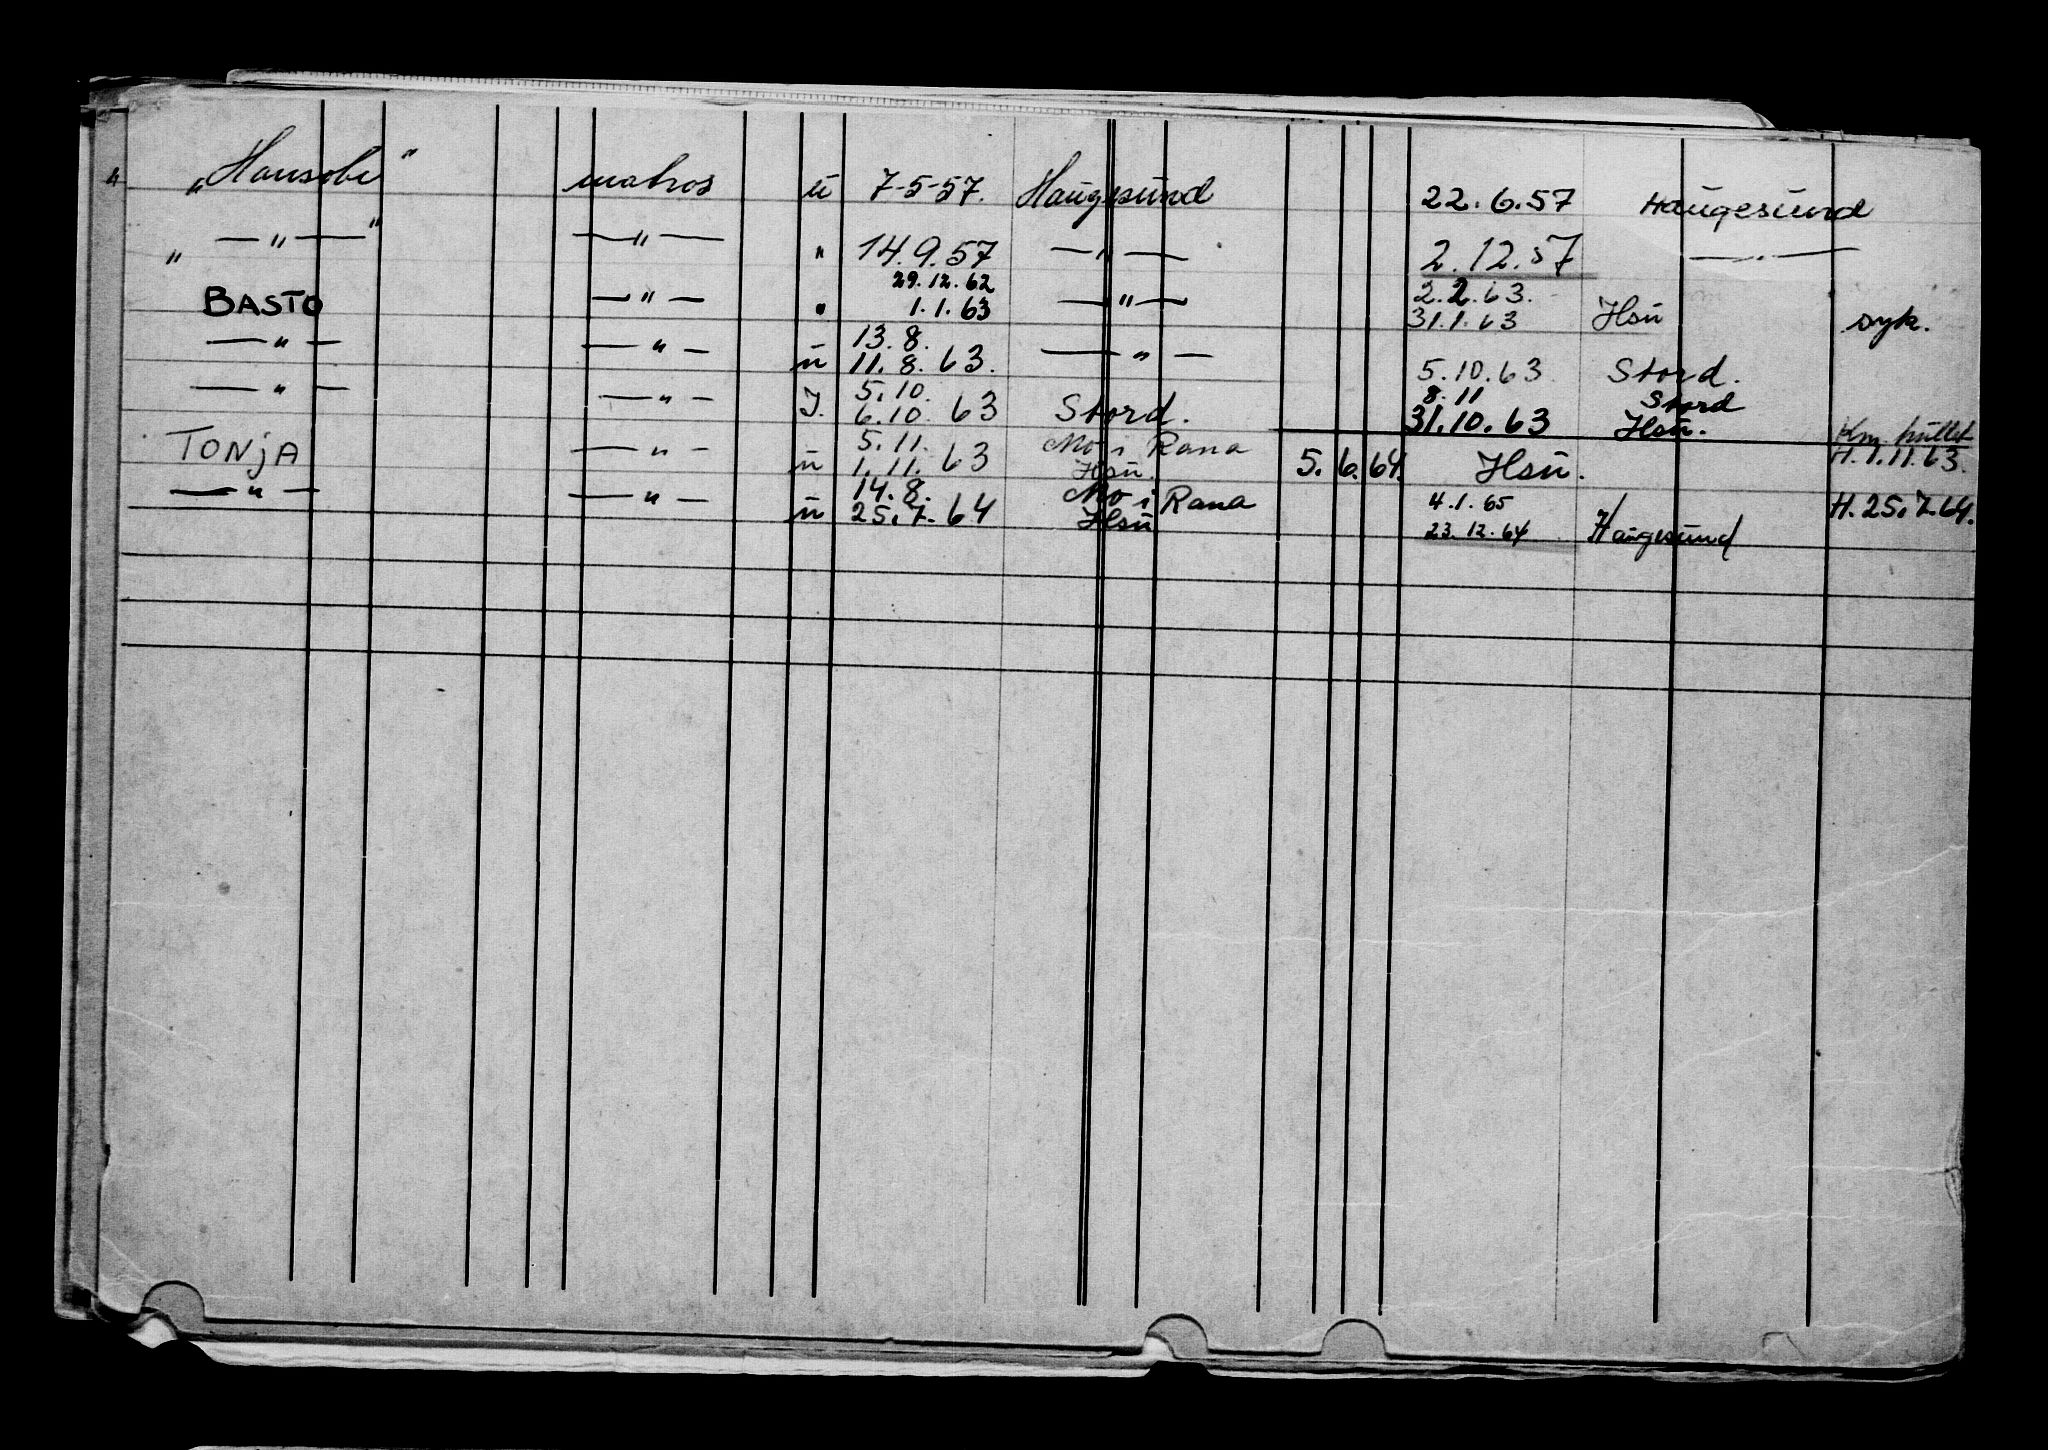 4 „Hansobe" matros u 7-5-57. Haugesund 22.6.57 Haugesund
" —"—" —"— " 14.9.57 —"— 2.12.57 —"—
29.12.62 2.2.63.
BASTO —"— " 1.1.63 —"— 31.1.63 Hsu syk.
13.8.
—"— —"— u 11.8.63. —"— 5.10.63 Stord.
5.10. 8.11 Stord
—"— —"— I. 6.10.63 Stord. 31.10.63 Hsu.
5.11. Mo i Rana
TONJA —"— u 1.11.63 Hsu. 5.6.64. Hsu. H.1.11.63.
14.8. Mo i Rana 4.1.65 H.25.7.64.
—"— —"— u 25.7.64 Hsu 23.12.64 Haugesund